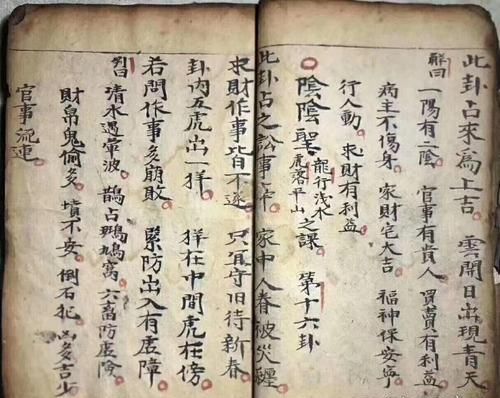 此卦占來為上吉 雲開日出現青天
解曰 一陽有二陰 官事有貴人 買賣有利益
病主不傷身 家財宅大吉 福神保安寧
行人動 求財有利益
陰陰聖 龍行浅水 虎落平山 之課 第十六卦
此卦占之訟事 家中人眷被災纏
求財作事皆不遂 只宜守旧待新春
卦内五虎出一样 样在中間虎在傍
若問作事多崩敗 緊防出入有虚障
清水遇 波 鵲占 鳩窩 六畜防虚險
財帛鬼偷多 墳不安 倒石 凶多吉少
官事 連